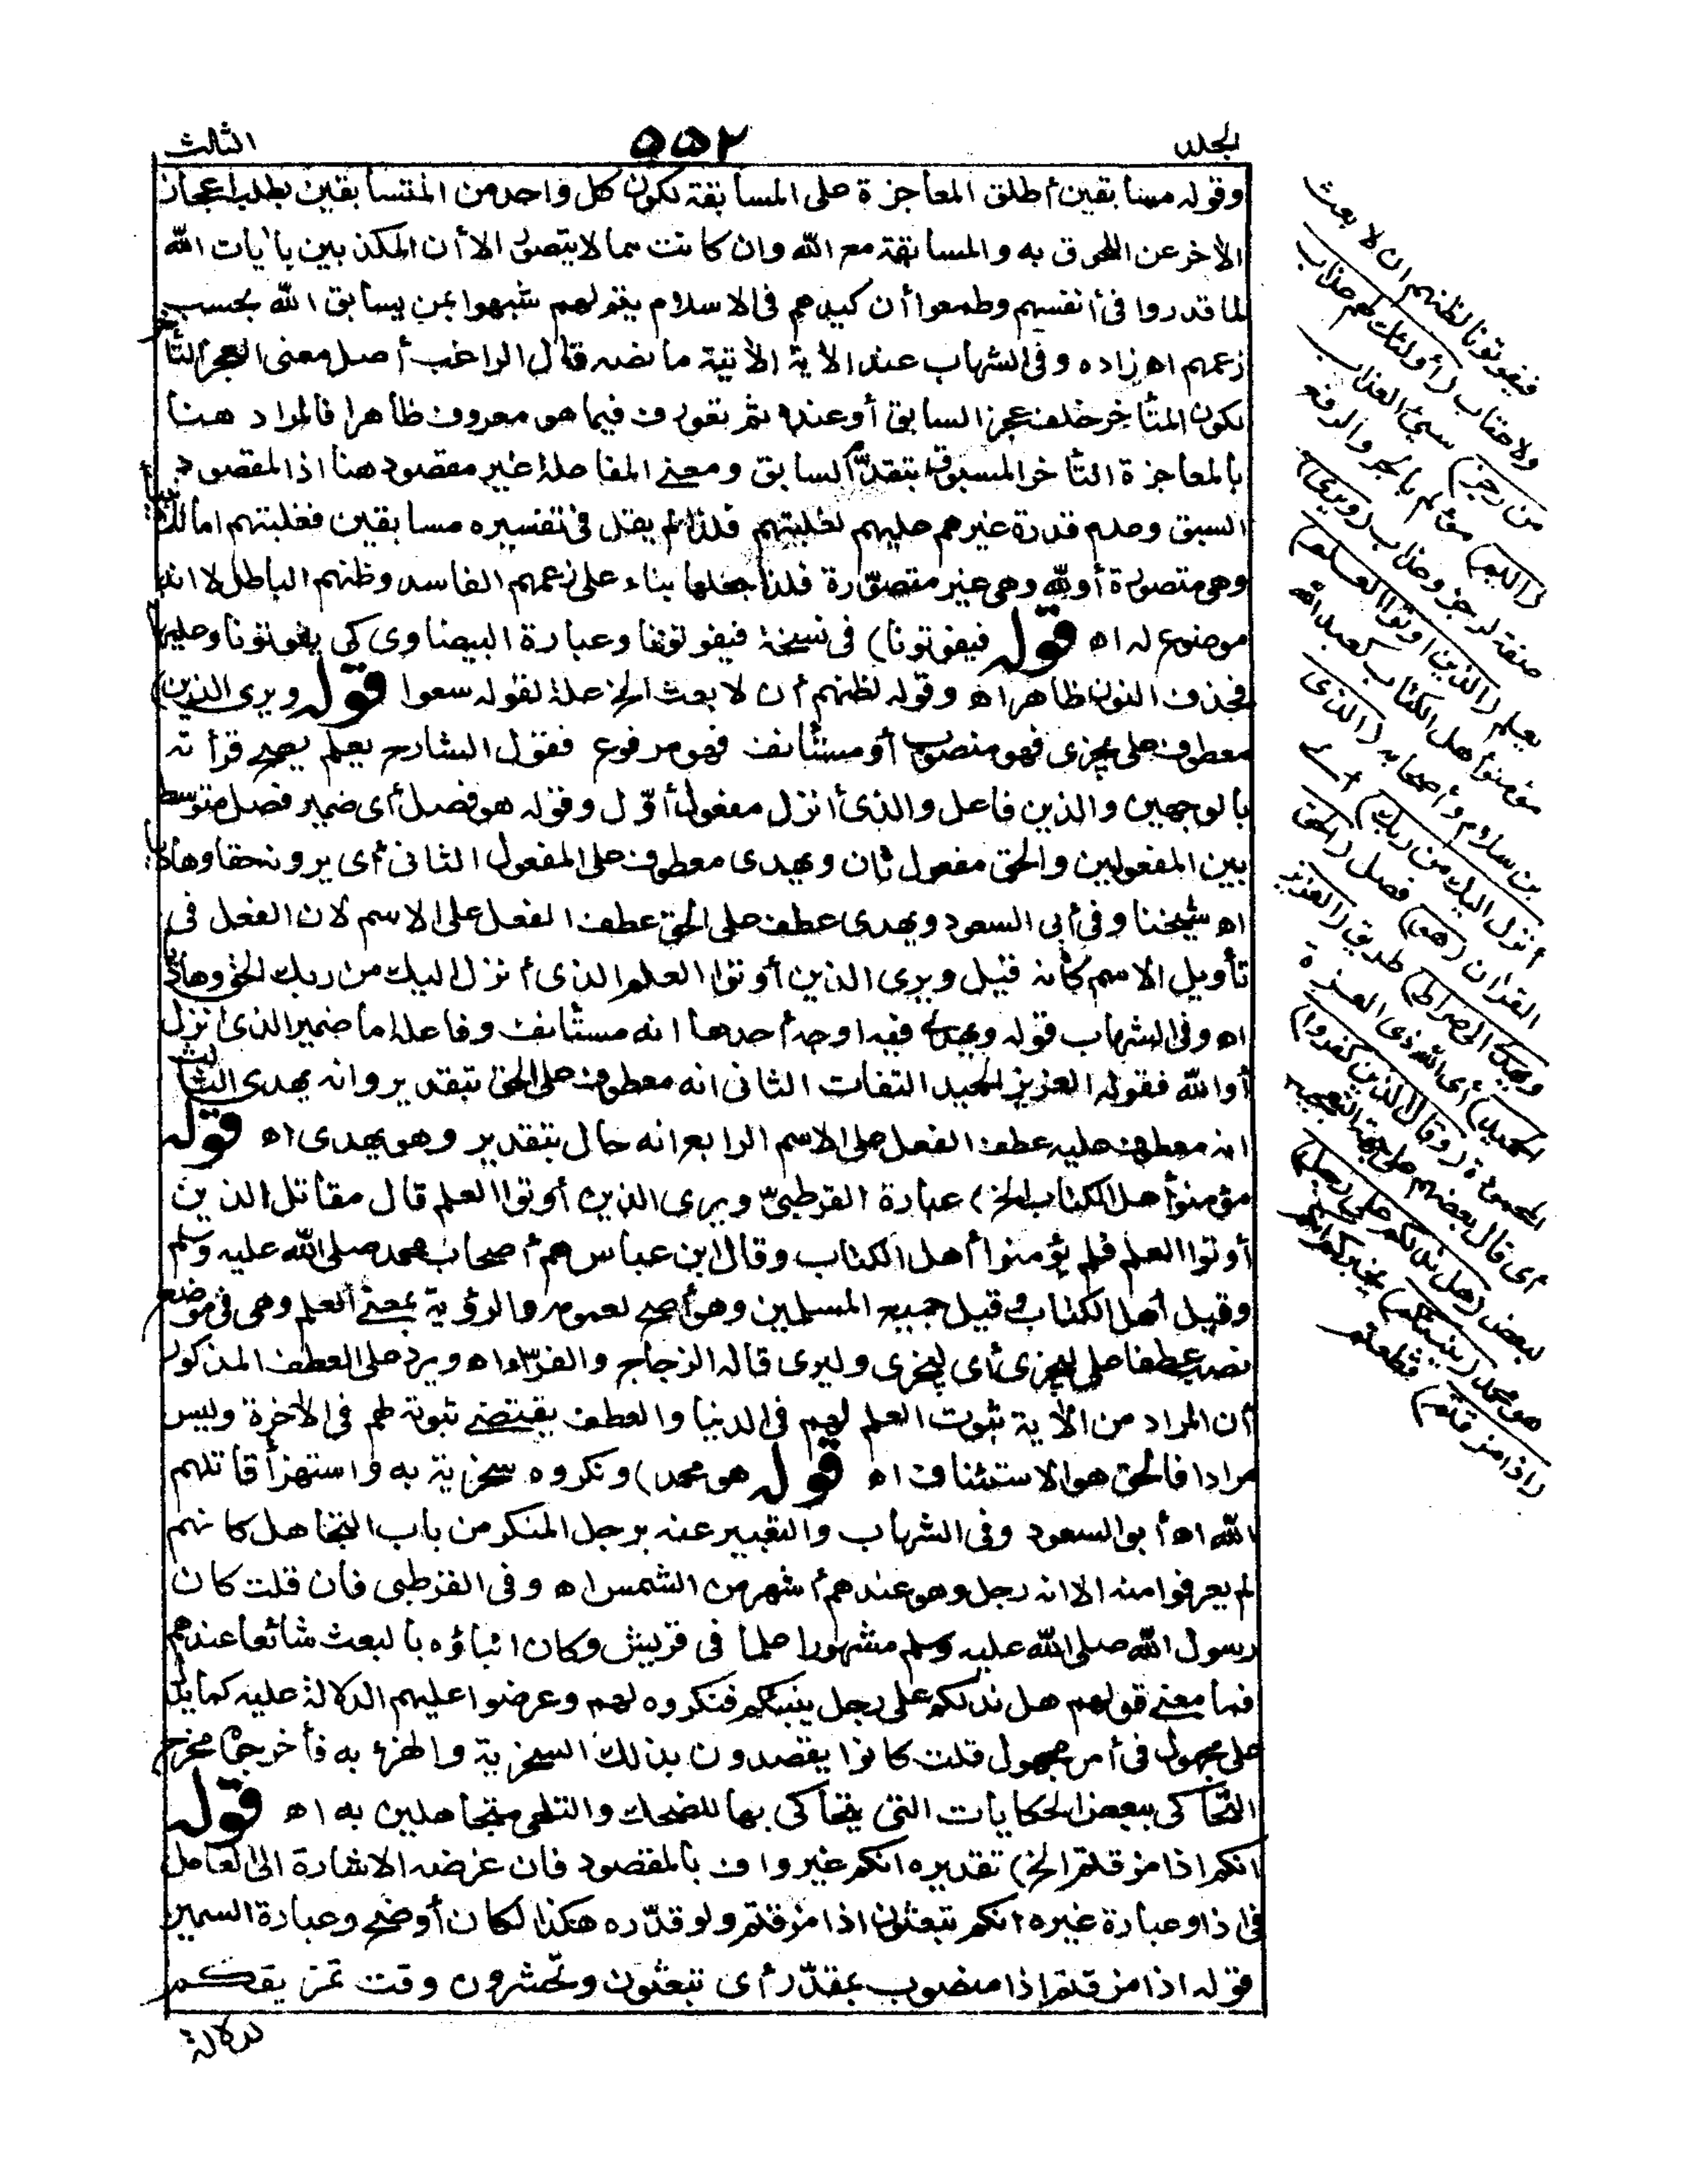 المجلد
٥٥٢
الثالث
وقوله مسابقين أطلق المعاجزة على المسابقة لكون كل واحد من المتسابقين يطلب اعجاز
الآخر عن اللحوق به والمسابقة مع الله وان كانت مما لا يتصور الا أن المكذبين بآيات الله
لما قدروا في أنفسهم وطمعوا أن كيدهم في الاسلام يتم لهم شبهوا بمن يسابق الله بحسب
زعمهم اه زاده وفي الشهاب عند الآية الآتية ما نصه قال الراغب أصل معنى العجز التأخر
لكون المتأخر خلف عجز السابق أو عنده ثم تعورف فيما هو معروف ظاهرا فالمراد هنا
بالمعاجزة التأخر المسبوق بتقدم السابق ومعنى المفاعلة غير مقصود هنا اذ المقصود
السبق وعدم قدرة غيرهم عليهم لغلبتهم فلذا لم يقل في تفسيره مسابقين فغلبتهم اما
وهي متصورة أو لله وهي غير متصورة فلذا جعلها بناء على زعمهم الفاسد وظنهم الباطل لا انه
موضوع له اه قوله فيفوتونا) في نسخة فيفوتوننا وعبارة البيضاوي كي يفوتونا وعليها
فحذف النون ظاهر اه وقوله لظنهم أن لا بعث الخ علة لقوله سعوا قوله ويرى الذين)
معطوف على يجزى فهو منصوب أو مستأنف فهو مرفوع فقول الشارح يعلم يصح قرأته
بالوجهين والذين فاعل والذي أنزل مفعول أول وقوله هو فصل أي ضمير فصل متوسط
بين المفعولين والحق مفعول ثان ويهدى معطوف على المفعول الثاني أي يرونه حقا وهاديا
اه شيخنا وفي أبي السعود ويهدى عطف على الحق عطف الفعل على الاسم لان الفعل في
تأويل الاسم كأنه قيل ويرى الذين أوتوا العلم الذي أنزل اليك من ربك الحق وهاديا
اه وفي الشهاب قوله ويهدى فيه اوجه أحدها انه مستأنف وفاعله اما ضمير الذي أنزل
أو الله فقوله العزيز الحميد التفات الثاني انه معطوف على الحق بتقدير وانه يهدى الثالث
انه معطوف عليه عطف الفعل على الاسم الرابع انه حال بتقدير وهو يهدى اه قوله
مؤمنو أهل الكتاب الخ) عبارة القرطبي ويرى الذين أوتوا العلم قال مقاتل الذين
أوتوا العلم فلم يؤمنوا أهل الكتاب وقال ابن عباس هم أصحاب محمد صلى الله عليه وسلم
وقيل أهل الكتاب وقيل جميع المسلمين وهو أصح لعمومه والرؤية بمعنى العلم وهي في موضع
نصب عطفا على ليجزى أي ليجزى وليرى قاله الزجاج والفراء اه ويرد على العطف المذكور
أن المراد من الآية ثبوت العلم لهم في الدنيا والعطف يقتضى ثبوته لهم في الآخرة وليس
مرادا فالحق هو الاستئناف اه قوله هو محمد) ونكروه سخرية به واستهزأ قاتلهم
الله اه أبو السعود وفي الشهاب والتعبير عنه برجل المنكر من باب التجاهل كانهم
لم يعرفوا منه الا انه رجل وهو عندهم أشهر من الشمس اه وفي القرطبي فان قلت كان
رسول الله صلى الله عليه وسلم مشهورا علما في قريش وكان انباؤه بالبعث شائعا عندهم
فما معنى قولهم هل ندلكم على رجل ينبئكم فنكروه لهم وعرضوا عليهم الدلالة عليه كما يدل
على مجهول في أمر مجهول قلت كانوا يقصدون بذلك السخرية والهزء به فأخرجوه مخرج
التحاكى ببعض الحكايات التي يتحاكى بها للضحك والتلهى متجاهلين به اه قوله
انكم اذا مزقتم الخ) تقديره انكم غير واف بالمقصود فان غرضه الاشارة الى العامل
في اذا وعبارة غيره انكم تبعثون اذا مزقتم ولو قدره هكذا لكان أوضح وعبارة السمين
قوله اذا مزقتم اذا منصوب بمقدر أي تبعثون وتحشرون وقت تمزيقكم
لدلالة
فيفوتونا لظنهم ان لا بعث
ولا عقاب (أولئك لهم عذاب
من رجز) سيئ العذاب
(أليم) مؤلم بالجر والرفع
صفة لرجز وعذاب (ويرى)
يعلم (الذين اوتوا العلم)
مؤمنو أهل الكتاب كعبد الله
بن سلام وأصحابه (الذى
أنزل اليك من ربك) أى
القرآن (هو) فصل (الحق
ويهدى الى صراط) طريق (العزيز
الحميد) أى الله ذى العزة
المحمود (وقال الذين كفروا)
أى قال بعضهم على جهة التعجيب
لبعض (هل ندلكم على رجل)
هو محمد (ينبئكم) يخبركم انكم
(اذا مزقتم) قطعتم